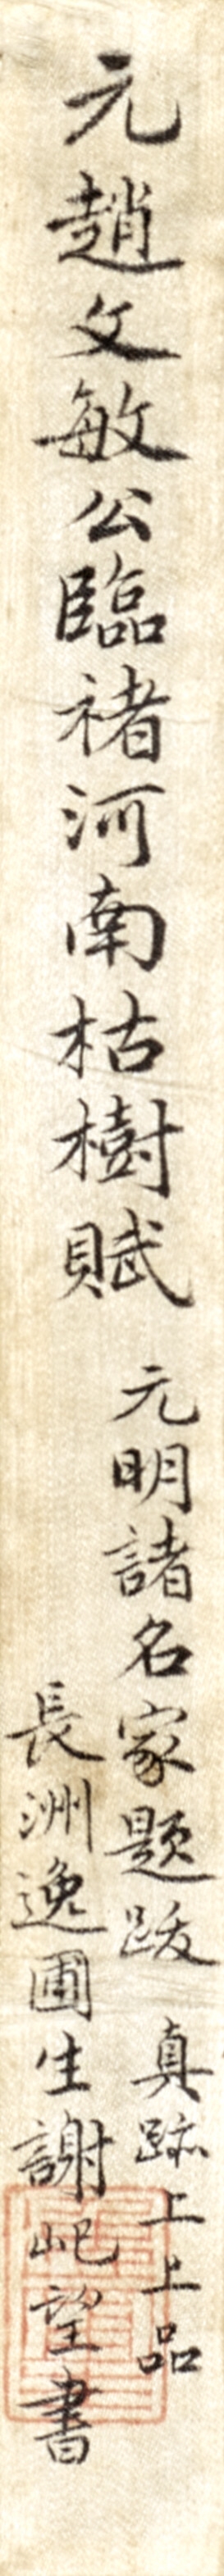 元趙文敏公臨褚河南枯樹賦
元明諸名家題跋 真跡上上品
長洲逸圃生謝屺望書